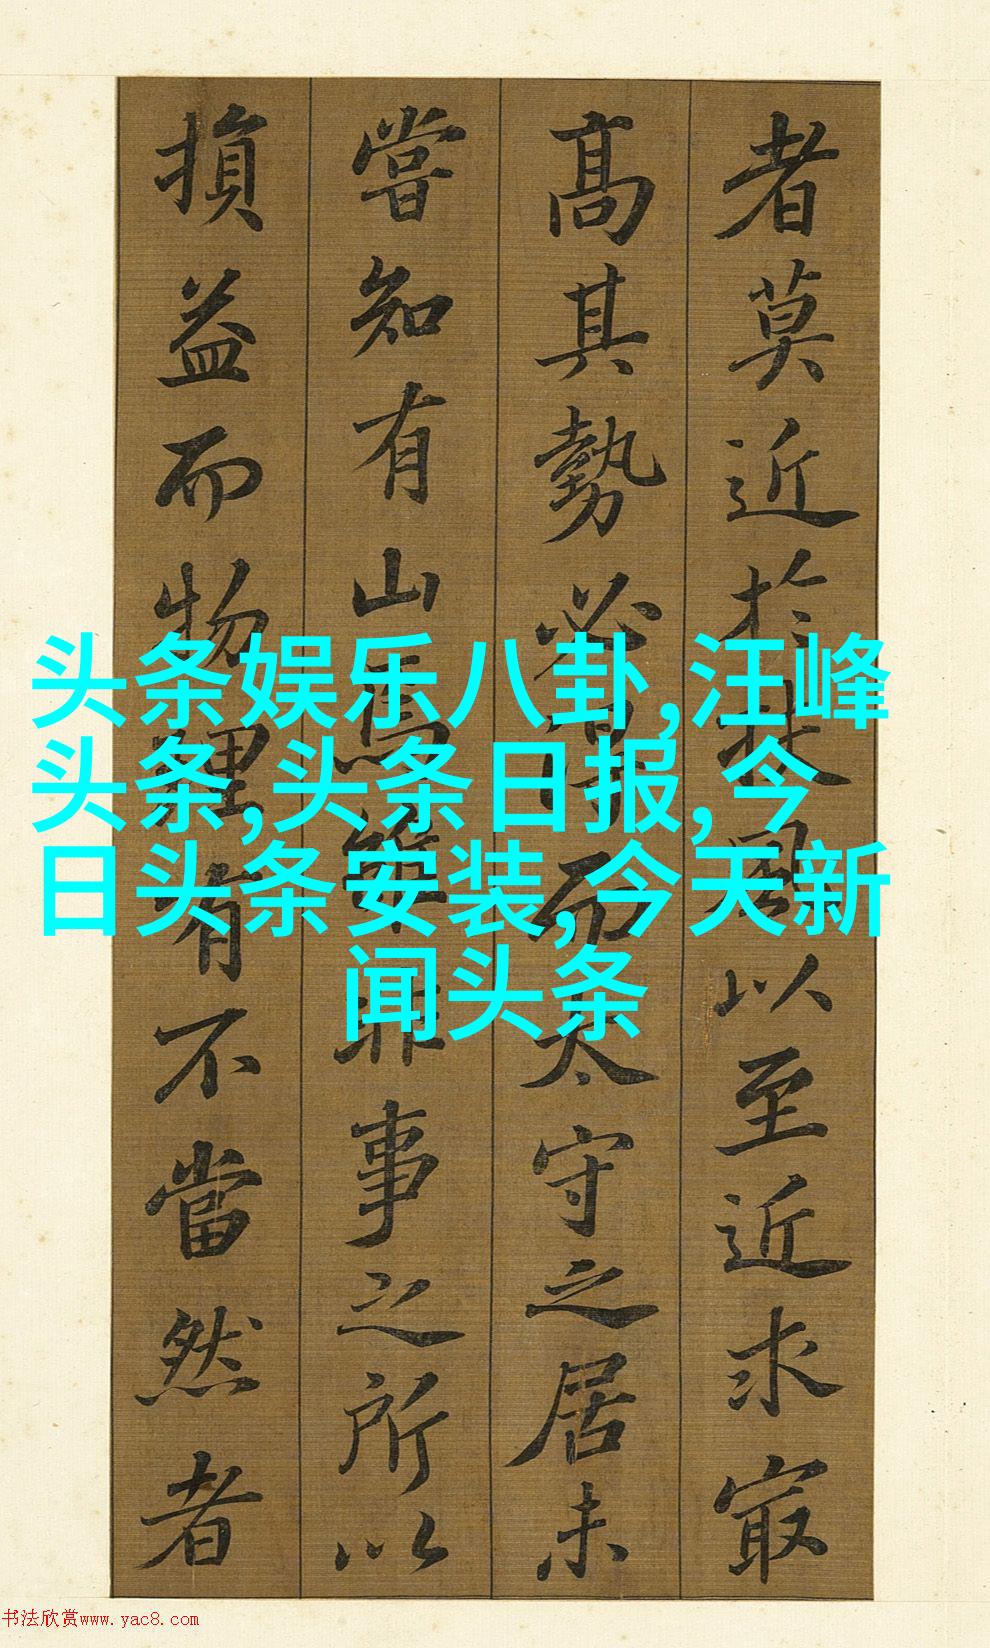 者莫近於扶風以至近求冣
高其勢必得而太守之居未
嘗知有山焉雖非事之所以
損益而物理有不當然者
头条娱乐八卦,汪峰
头条,头条日报,今
日头条安装,今天新
闻头条
书法欣赏www.yac8.com